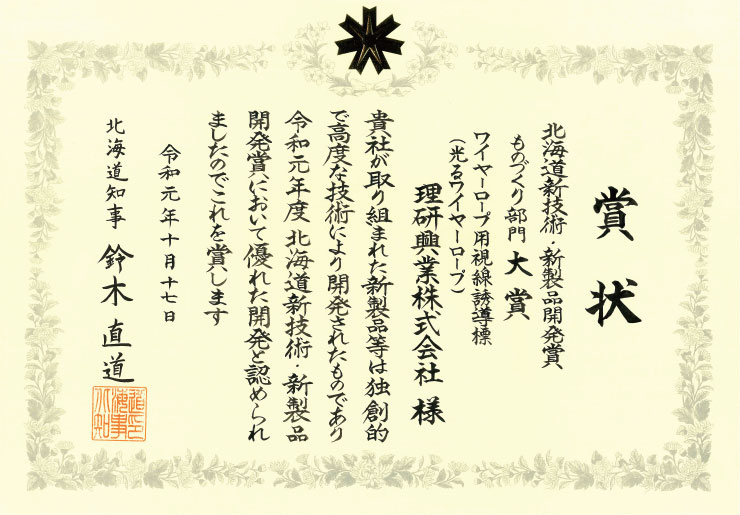 賞状
北海道新技術・新製品開発賞
ものづくり部門 大賞
ワイヤーロープ用視線誘導標
(光るワイヤーロープ)
理研興業株式会社 様
貴社が取り組まれた新製品等は独創的
で高度な技術により開発されたものであり
令和元年度 北海道新技術・新製品
開発賞において優れた開発と認められ
ましたのでこれを賞します
令和元年十月十七日
北海道知事 鈴木直道